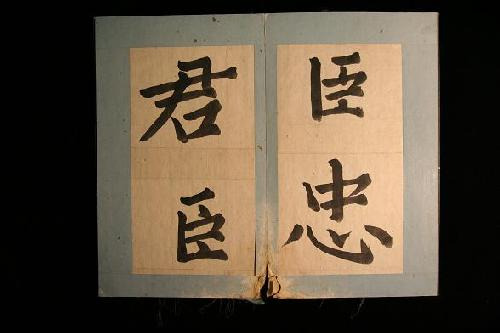 臣忠
君臣